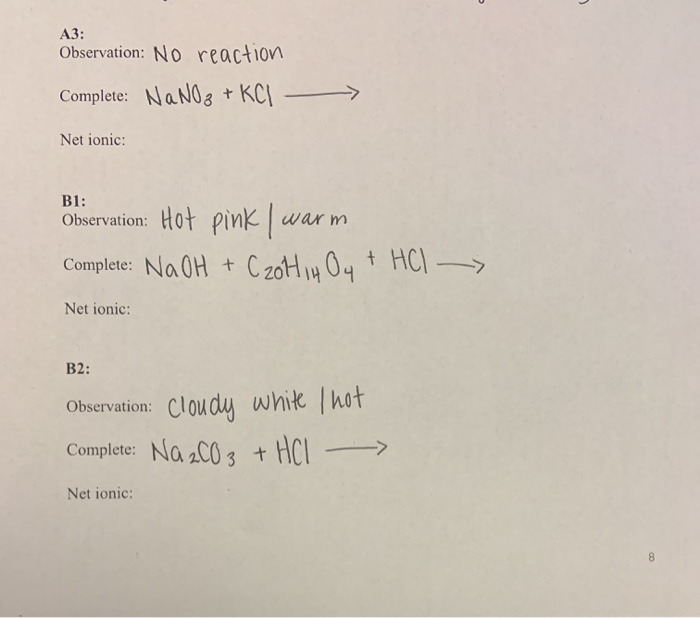 A3:
Observation: No reaction
Complete: NaNO3 + KCl ⟶
Net ionic:
B1:
Observation: Hot pink / warm
Complete: NaOH + C20H14O4 + HCl ⟶
Net ionic:
B2:
Observation: Cloudy white / hot
Complete: Na2CO3 + HCl ⟶
Net ionic:
8